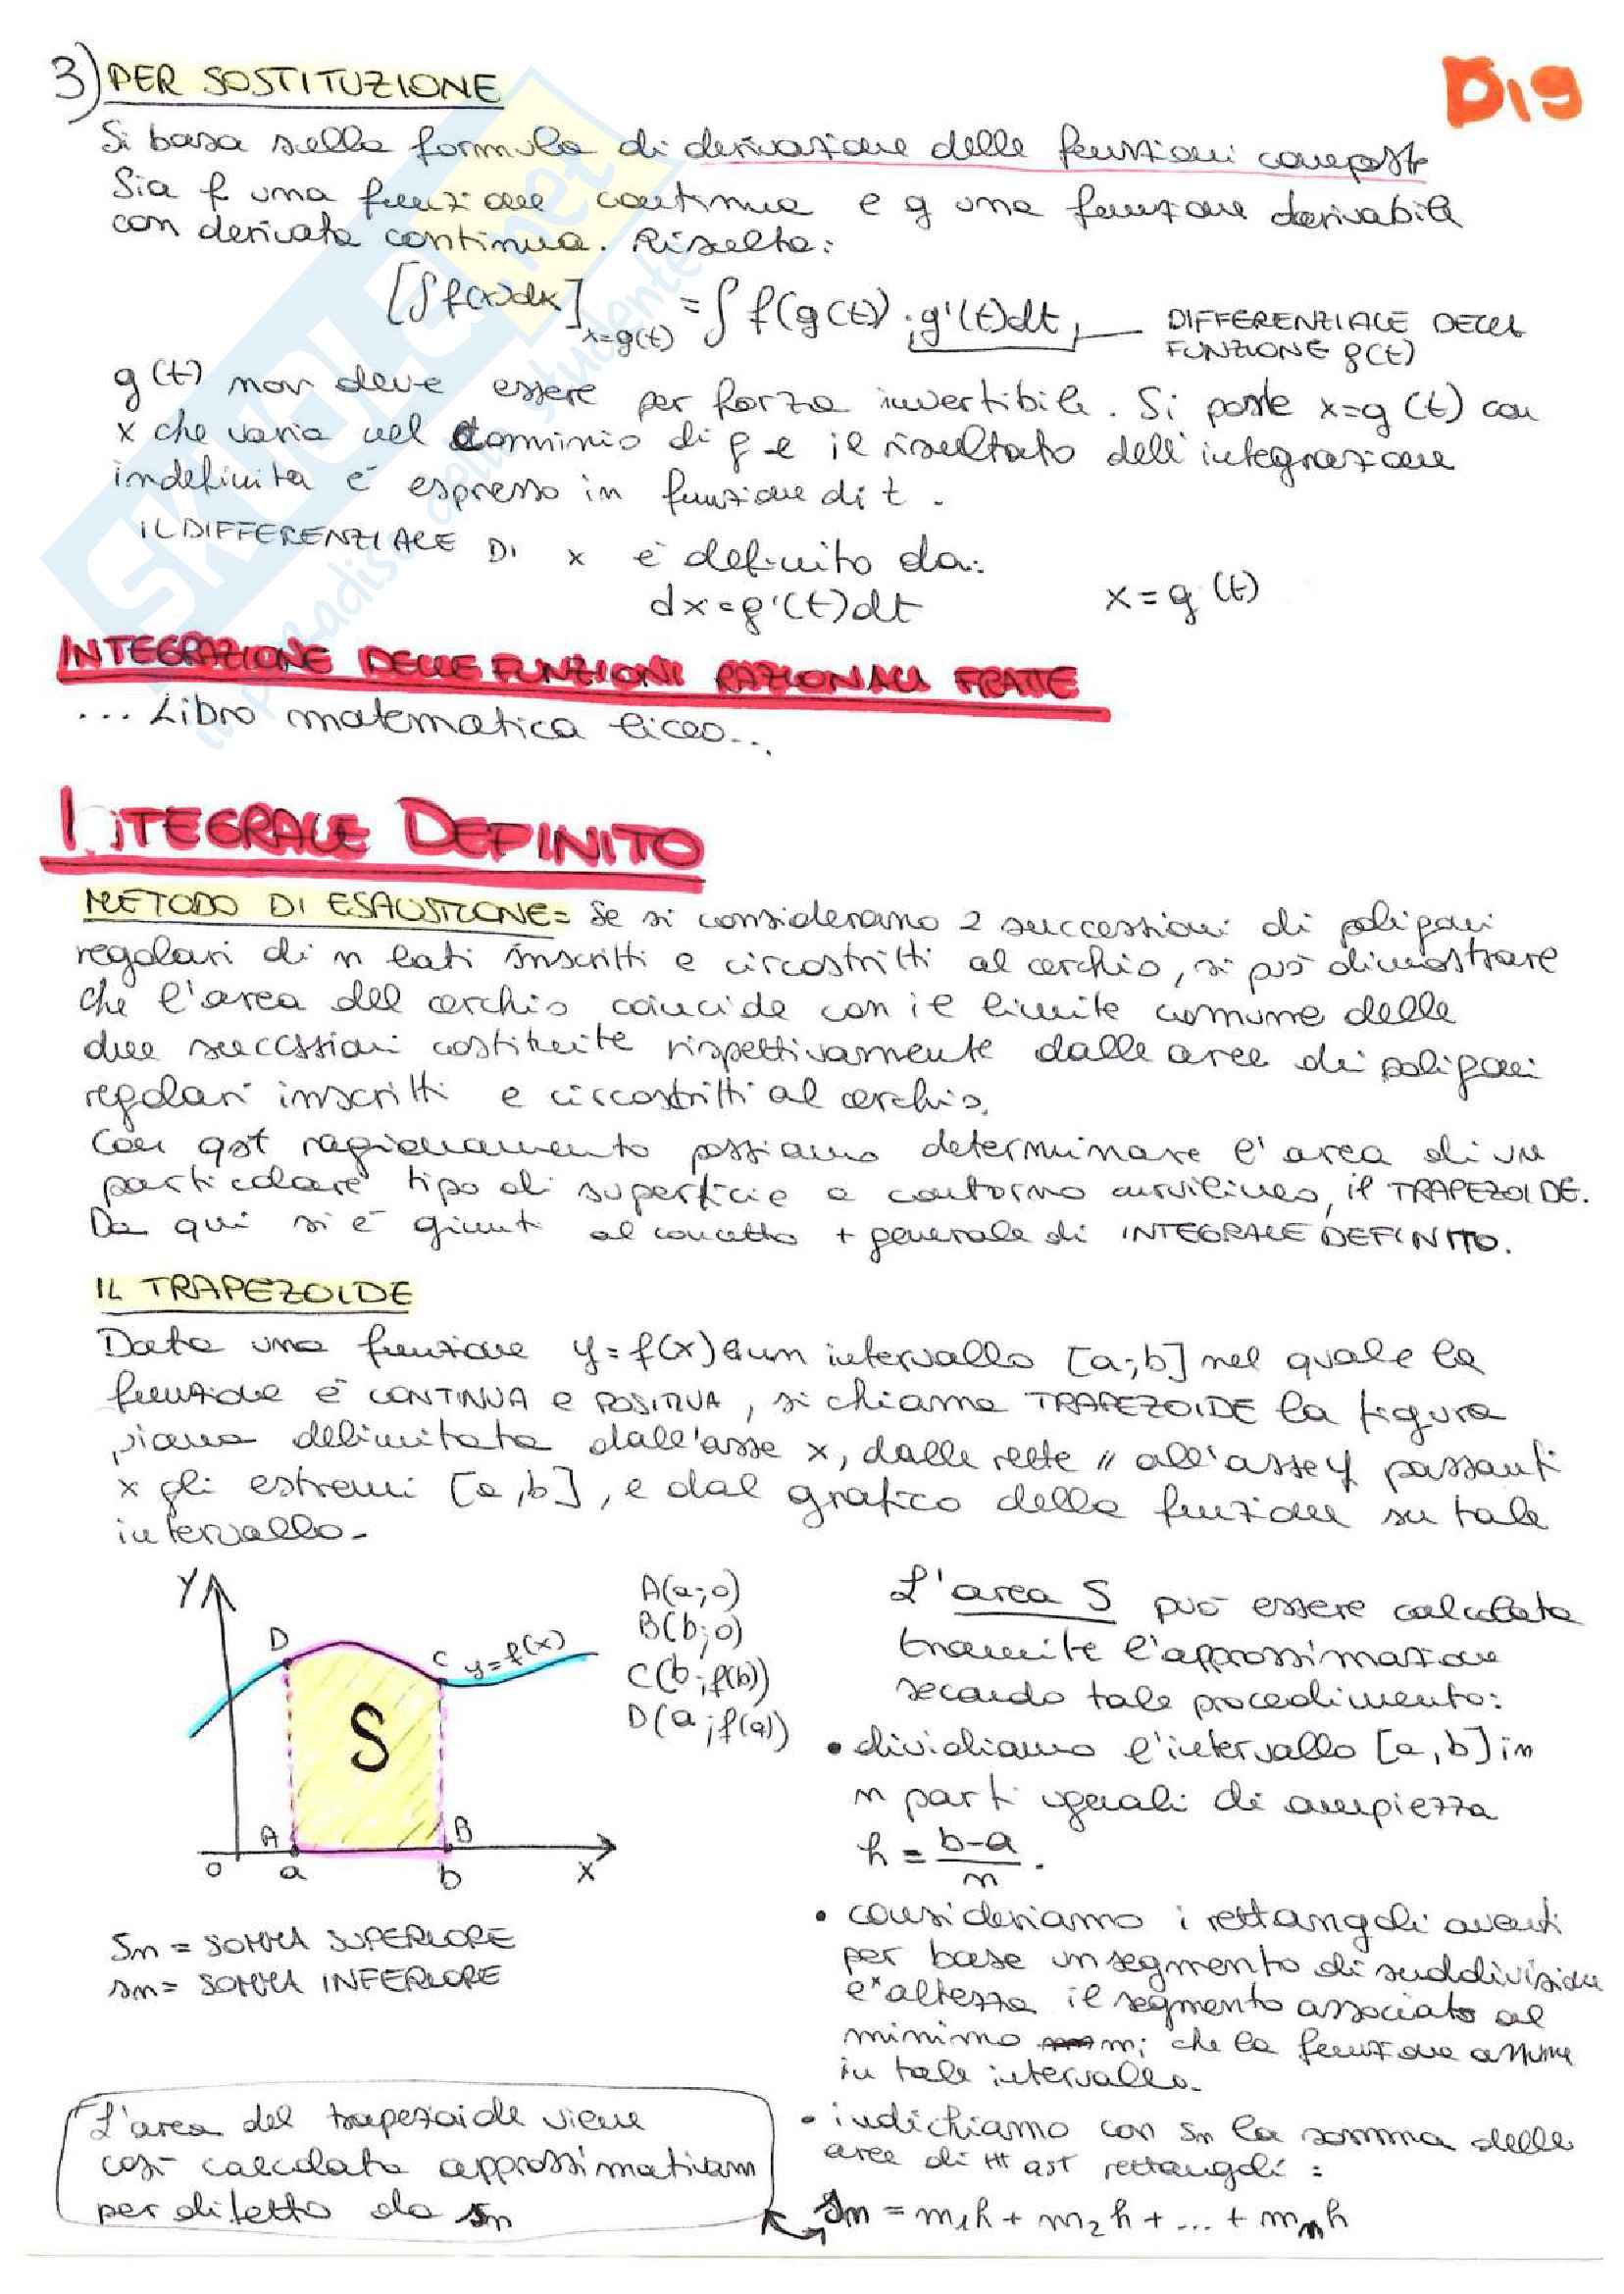 D19
3) PER SOSTITUZIONE
Si basa sulla formula di derivazione delle funzioni composte
Sia f una funzione continua e g una funzione derivabile
con derivata continua. Risulta:
[∫f(x)dx]x=g(t) = ∫f(g(t))·g'(t)dt, — DIFFERENZIALE DELLA
FUNZIONE g(t)
g(t) non deve essere per forza invertibile. Si pone x=g(t) con
x che varia nel dominio di f e il risultato dell'integrazione
indefinita è espresso in funzione di t.
IL DIFFERENZIALE DI x è definito da:
dx=g'(t)dt x=g(t)
INTEGRAZIONE DELLE FUNZIONI RAZIONALI FRATTE
... Libro matematica liceo...
INTEGRALE DEFINITO
METODO DI ESAUSTIONE= Se si considerano 2 successioni di poligoni
regolari di n lati inscritti e circostritti al cerchio, si può dimostrare
che l'area del cerchio coincide con il limite comune delle
due successioni costituite rispettivamente dalle aree dei poligoni
regolari inscritti e circostritti al cerchio.
Con qst ragionamento possiamo determinare l'area di un
particolare tipo di superficie a contorno curvilineo, il TRAPEZOIDE.
Da qui si è giunti al concetto + generale di INTEGRALE DEFINITO.
IL TRAPEZOIDE
Data una funzione y=f(x) e un intervallo [a;b] nel quale la
funzione è CONTINUA e POSITIVA, si chiama TRAPEZOIDE la figura
piana delimitata dall'asse x, dalle rette // all'asse y passanti
x gli estremi [a,b], e dal grafico della funzione su tale
intervallo.
Y
D
C
y=f(x)
S
A
B
O a b X
A(a;0)
B(b;0)
C(b;f(b))
D(a;f(a))
Sn = SOMMA SUPERIORE
sn = SOMMA INFERIORE
L'area S può essere calcolata
tramite l'approssimazione
secondo tale procedimento:
• dividiamo l'intervallo [a,b] in
n parti uguali di ampiezza
h = b-a/n.
• consideriamo i rettangoli aventi
per base un segmento di suddivisione
e x altezza il segmento associato al
minimo mi che la funzione assume
in tale intervallo.
• indichiamo con sn la somma delle
aree di tt qst rettangoli:
sn = m1h + m2h + ... + mnh
L'area del trapezoide viene
così calcolata approssimativam
per difetto da sn
SKUOLA.net
il paradiso dello studente